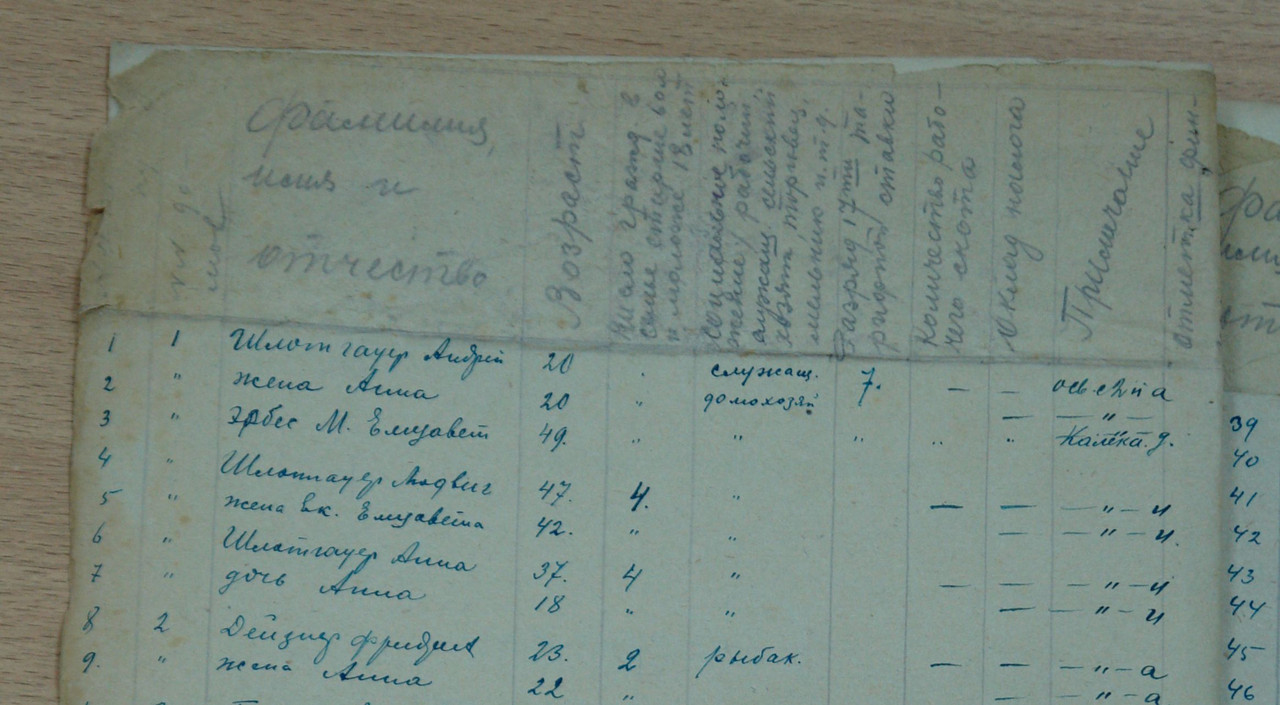 Фамилия,
имя и
отчество
Возраст
Число гражд. в
семье старше 60 л
и моложе 18 лет
Социальное полож.
рабочий,
служащ. сельск.
мельник и т.д.
Разряд 17ти та-
ставки
Количество рабо-
чего скота
Оклад налога
Примечание
Отметка фин-
1 1 Шлотгауер Андрей 20 служащ. 7. — —
2 " жена Анна 20 " домохозяй — — " —
3 " Эрбес М. Елизавет 49. " " " " " Калека. д.
4 " Шлотгауер Людвиг 47. 4. " — — — " — и
5 " жена вк. Елизавета 42. " " — — " — и.
6 " Шлотгауер Анна 37. 4 " — — — " — и
7 " дочь Анна 18 " " — — " — и
8 2 Дейзнер Фридрих 23. 2 рыбак. — — — " — а
9. " жена Анна 22 " — — " — а
39
40
41
42
43
44
45
46